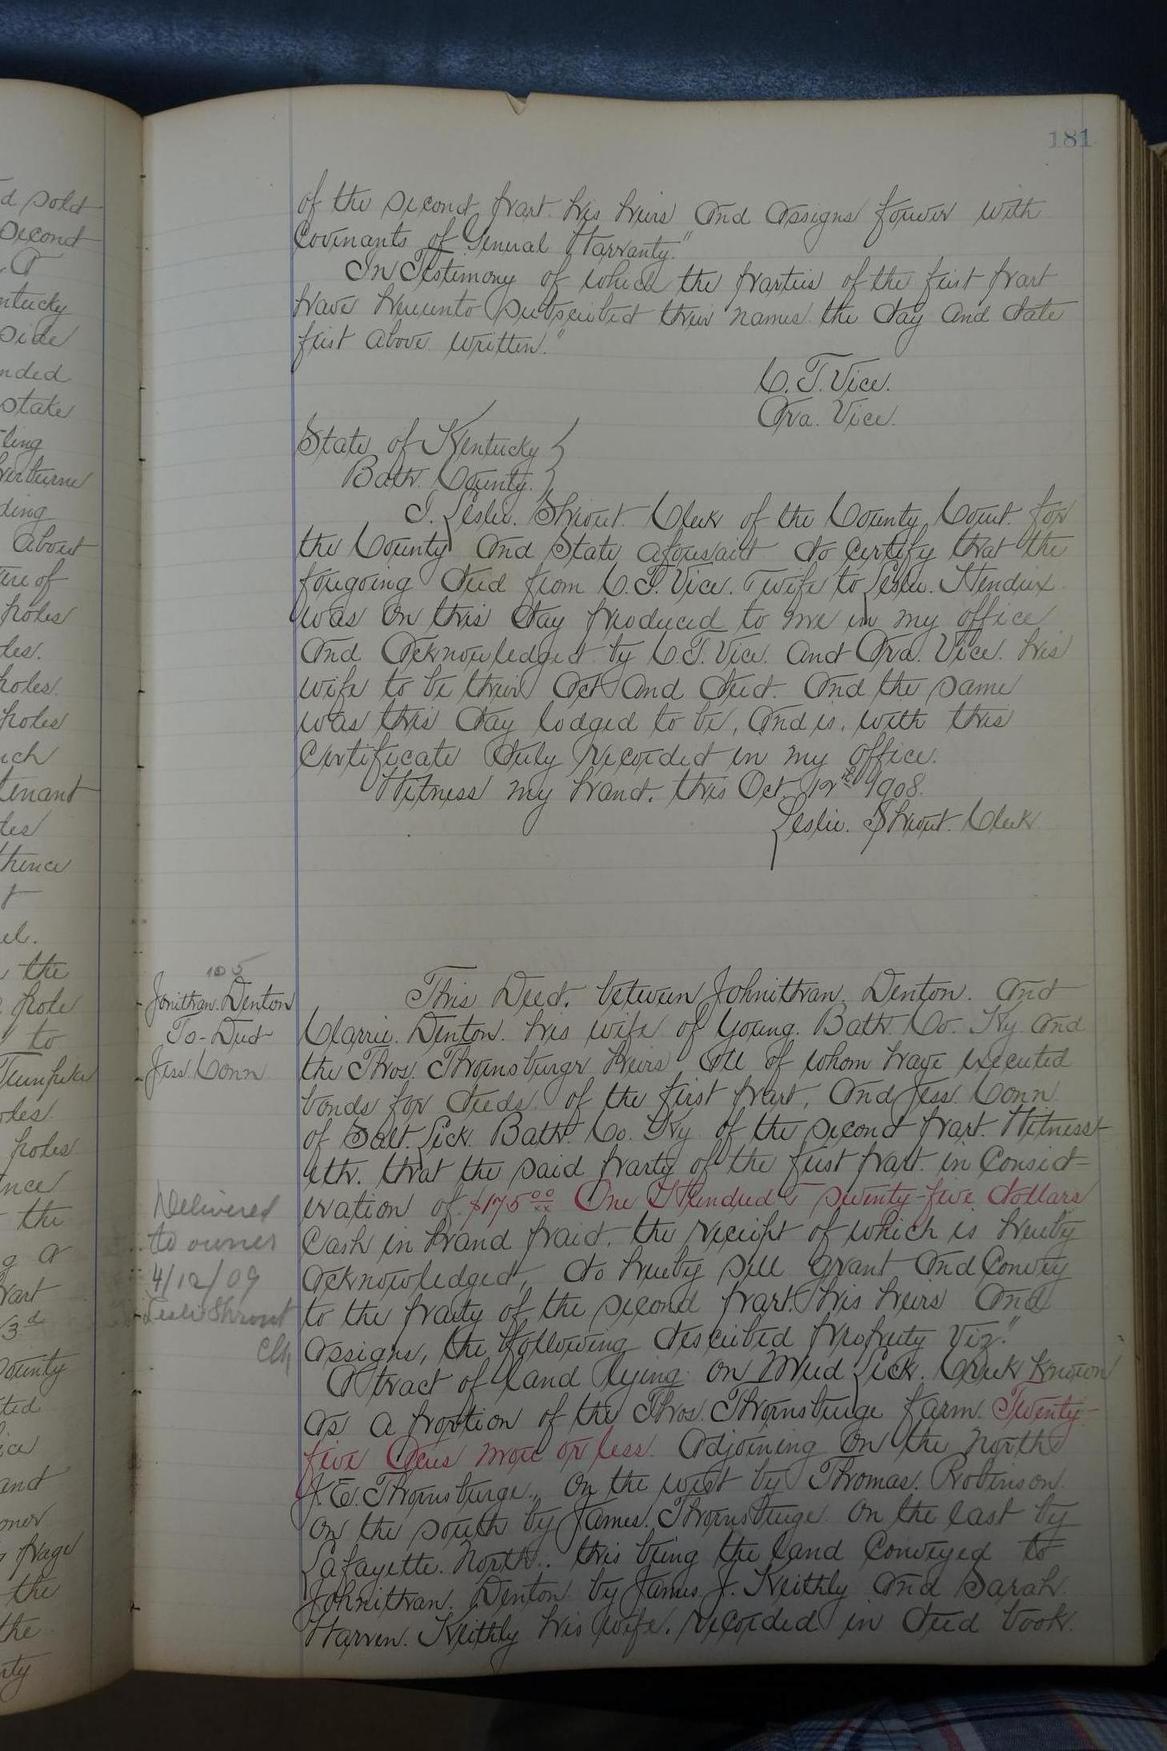 181
of the second part his heirs and assigns forever with
Covenants of General Warranty."
In Testimony of which the parties of the first part
have hereunto subscribed their names the day and date
first above written."
C. T. Vice.
Ora. Vice.
State of Kentucky }
Bath. County. }
I. Leslie. Shrout. Clerk of the County Court. for
the County and State aforesaid do certify that the
foregoing deed from C. T. Vice. & wife to Leslie. Hendrix
was on this day produced to me in my office
and acknowledged by C. T. Vice. and Ora. Vice. his
wife to be their act and deed. and the same
was this day lodged to be, and is, with this
Certificate duly recorded in my office.
Witness my hand. this Oct. 12th 1908.
Leslie. Shrout. Clerk
105
Jonithan. Denton
To - Deed
Jess Conn
Delivered
to owner
4/12/09
Leslie Shrout
Clk
This Deed. between Johnithan. Denton. and
Carrie. Denton. his wife of Young. Bath. Co. Ky. and
the Thos. Thornsburgr heirs all of whom have executed
bonds for deeds. of the first part, and Jess. Conn
of Salt. Lick. Bath. Co. Ky of the second part. Witness-
eth. that the said party of the first part. in Consid-
eration of $175 00/xx One Hundred & seventy-five dollars
Cash in hand paid. the receipt of which is hereby
acknowledged, do hereby sell grant and Convey
to the party of the second part his heirs and
assigns, the following described property viz."
A tract of land lying on Mud Lick. Creek known
as a portion of the Thos. Thornsburge farm. Twenty-
five Acres more or less. adjoining on the north
J. E. Thornsburge., on the west by Thomas. Robinson.
on the south by James. Thornsburge. on the east by
Lafayette. North.. this being the land Conveyed to
Johnithan. Denton by James J. Keithly and Sarah.
Warren. Keithly his wife. recorded in deed book.
d sold
second
ntucky
side
nded
stake
ling
ding
about
poles
poles.
poles
ich
tenant
thence
the
pole
to
Turnpike
poles
the
part
3d
County
and
page
the
the